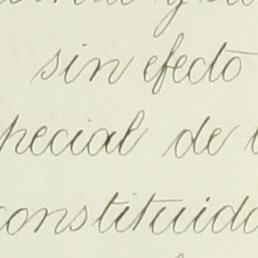 sin efecto
pecial de
constituido